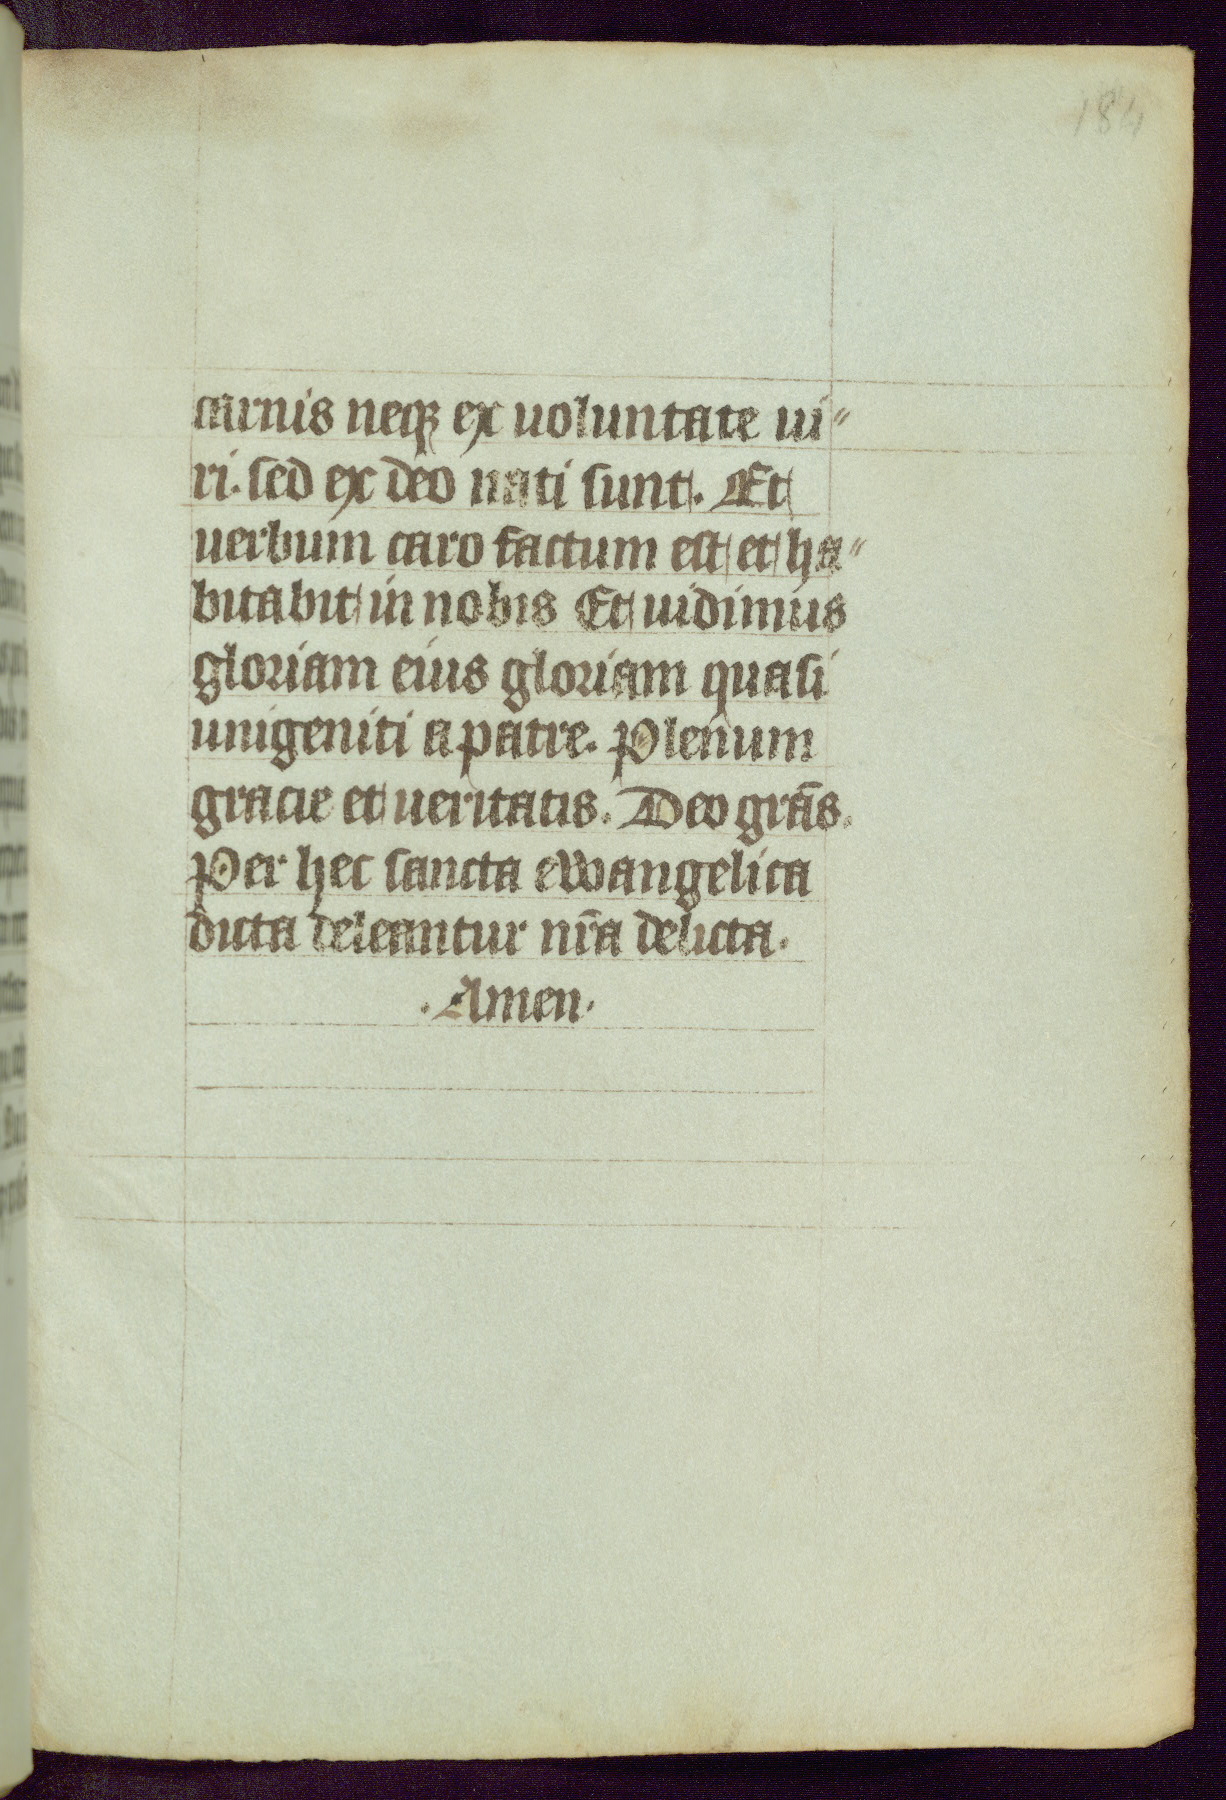 184
carnis neqꝫ ex uoluntate ui〃
ri. sed ex deo nati sunt. Et
uerbum caro factum est et ha〃
bitabit in nobis Et uidimus
gloriam eius gloriam quasi
unigeniti a patre. Plenum
gracie et ueritatis. Deo grãs.
Per hec sancta ewangelica
dicta deleantur nr̃a delicta.
.Amen.